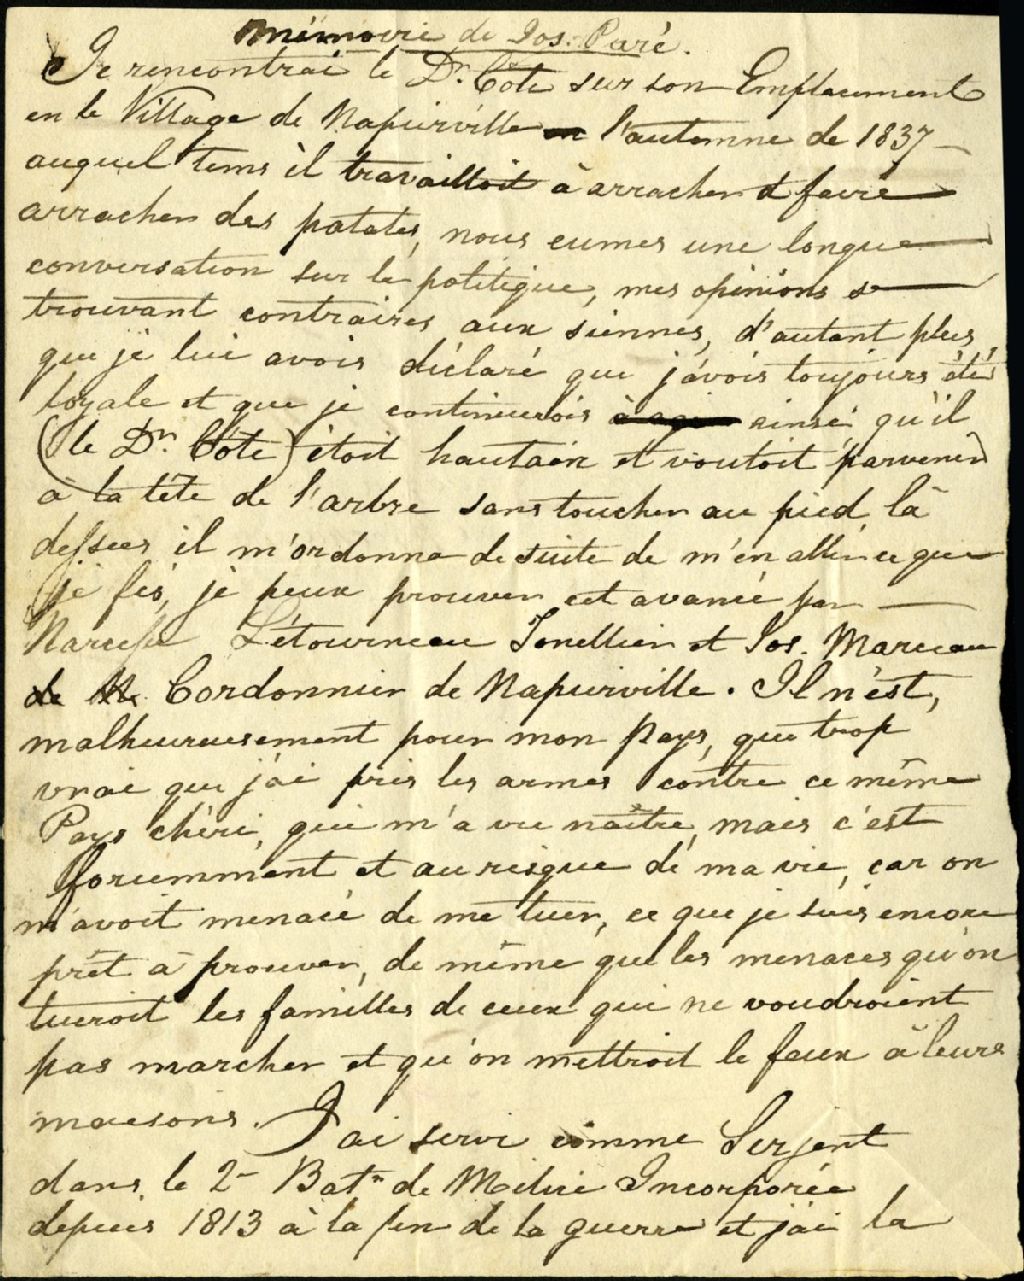 Mémoire de Jos. Paré.
Je rencontrai le Dr. Côte sur son Emplacement
en le Village de Napierville en l'automne de 1837
auquel tems il travailloit à arracher & faire
arracher des patates, nous eumes une longue
conversation sur la politique, mes opinions se
trouvant contraires aux siennes, d'autant plus
que je lui avois déclaré que j'avois toujours été
loyale et que je continuerois ainsi qu'il
(le Dr. Côte) étoit hautain et vouloit parvenir
à la tête de l'arbre sans toucher au pied, là
dessus il m'ordonna de suite de m'en aller ce que
je fis, je peux prouver cet avancé par
Narcisse Létourneau Tonellier et Jos. Marceau
de Cordonnier de Napierville. Il n'est,
malheureusement pour mon Pays, que trop
vrai que j'ai pris les armes contre ce même
Pays chéri, qui m'a vu naître, mais c'est
forcemment et au risque de ma vie, car on
m'avoit menacé de me tuer, ce que je suis encore
prêt à prouver, de même que les menaces qu'on
tueroit les familles de ceux qui ne voudroient
pas marcher et qu'on mettroit le feux à leurs
maisons. J'ai servi comme Serjent
dans le 2- Batn. de Milice Incorporée
depuis 1813 à la fin de la guerre et j'ai la